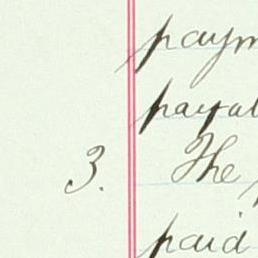 paym
payal
3. The
paid